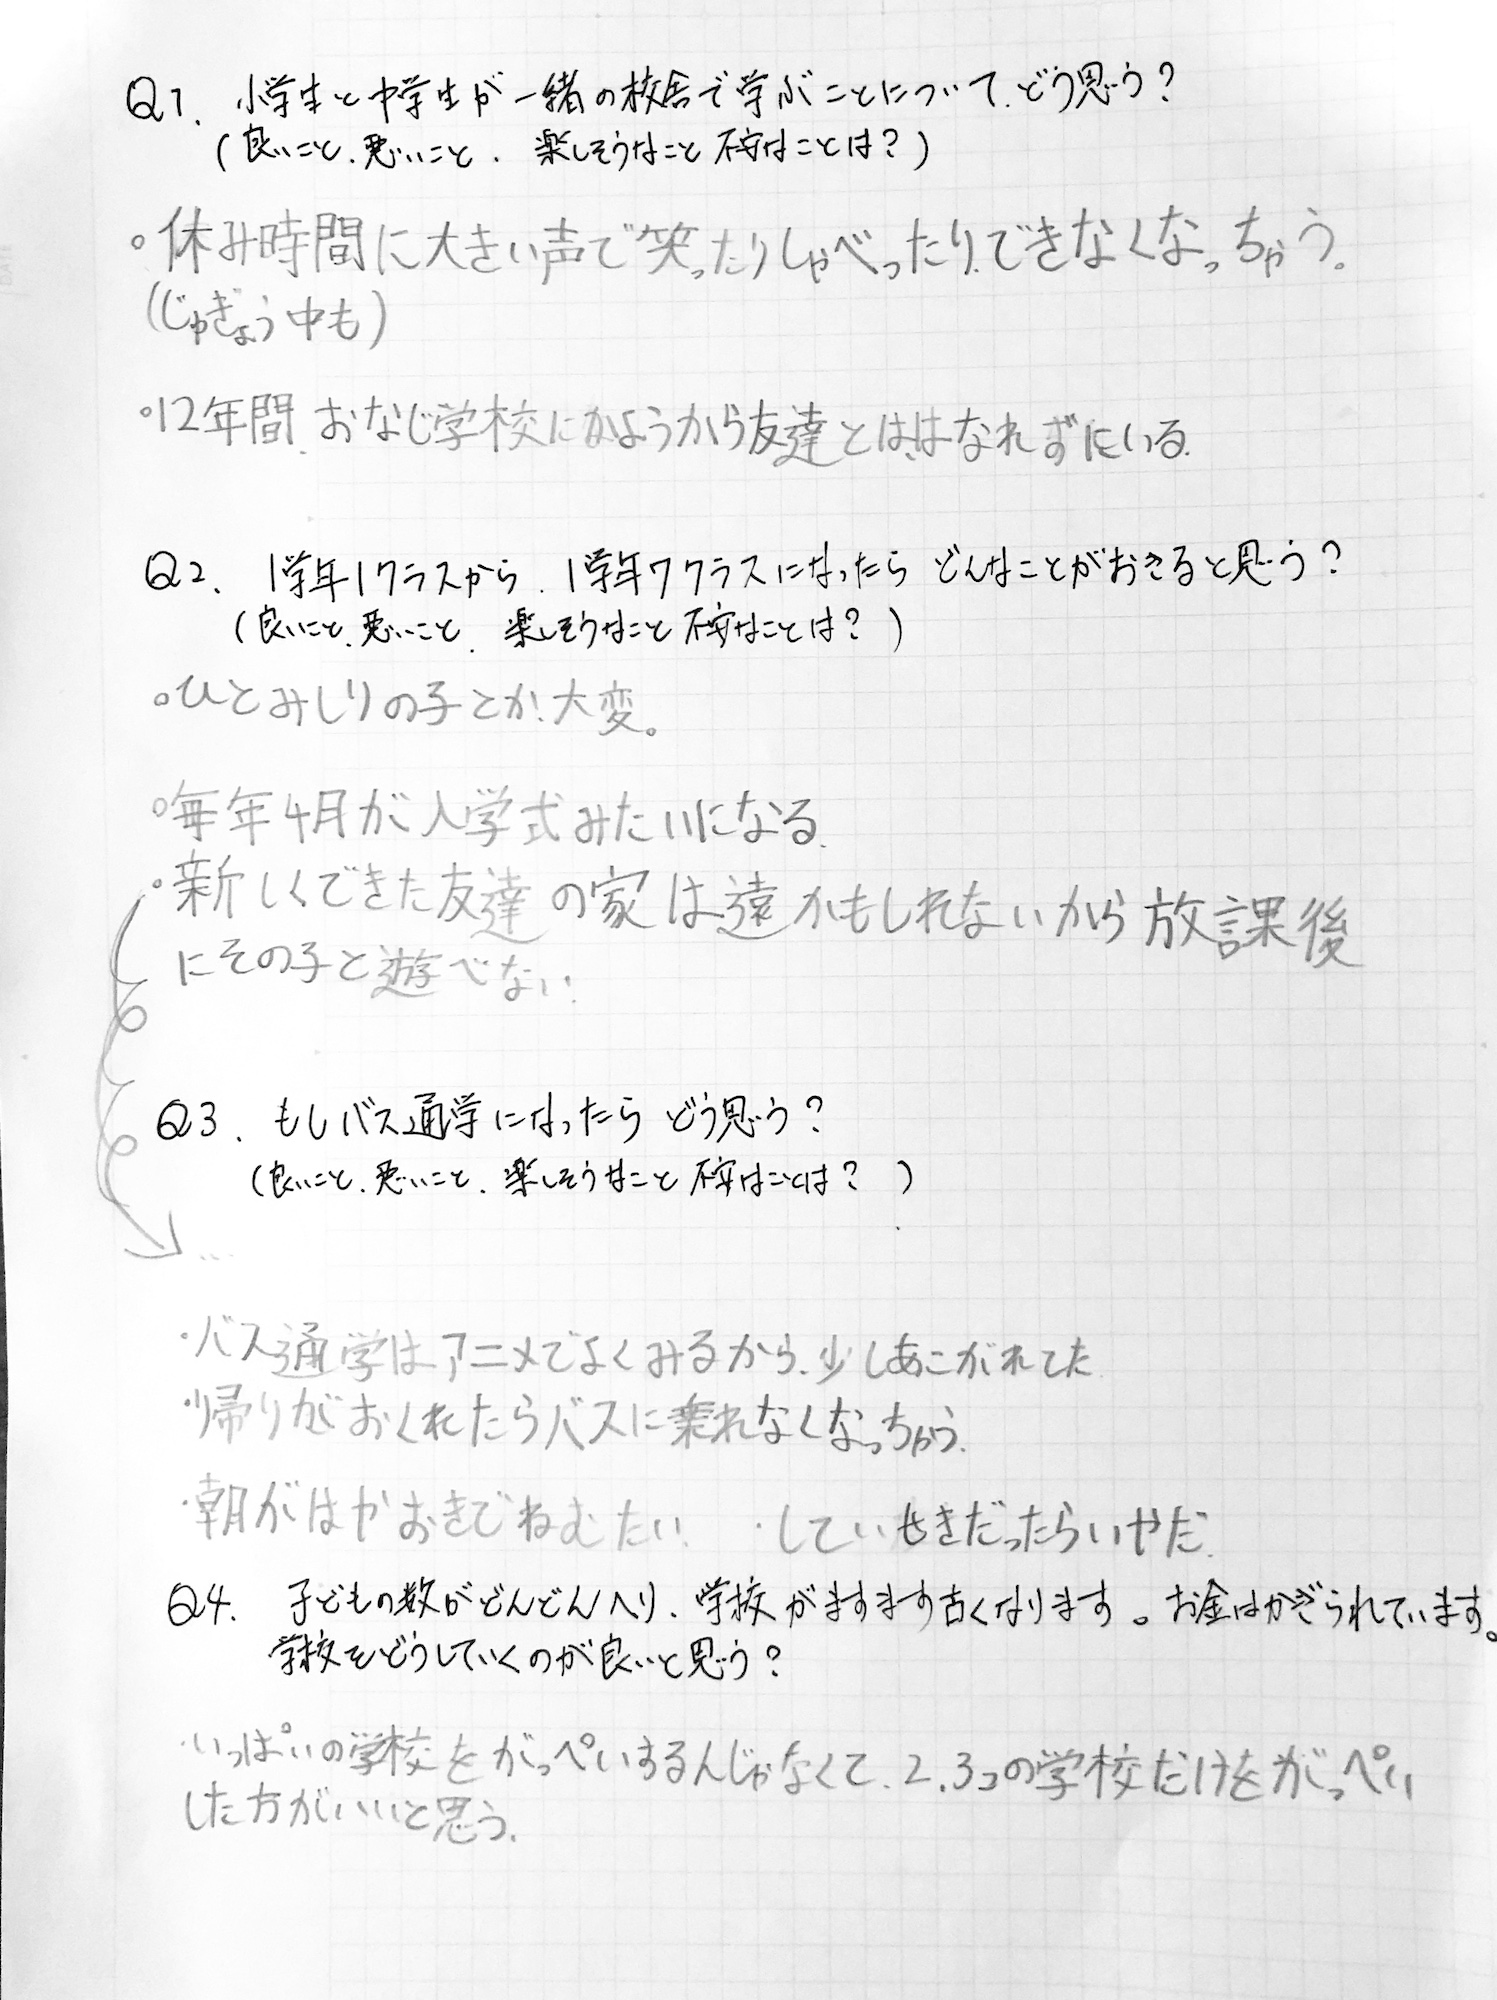 Q1. 小学生と中学生が一緒の校舎で学ぶことについて、どう思う？
（良いこと、悪いこと、楽しそうなこと 不安なことは？）
。休み時間に大きい声で笑ったりしゃべったり、できなくなっちゃう。
（じゅぎょう中も）
。12年間、おなじ学校にかようから友達とは、はなれずにいる。
Q2. 1学年1クラスから、1学年7クラスになったら どんなことがおきると思う？
（良いこと、悪いこと、楽しそうなこと 不安なことは？）
。ひとみしりの子とか、大変。
。毎年4月が入学式みたいになる。
。新しくできた友達の家は遠かもしれないから放課後
にその子と遊べない。
Q3. もしバス通学になったら どう思う？
（良いこと、悪いこと、楽しそうなこと 不安なことは？ ）
・バス通学はアニメでよくみるから、少しあこがれてた。
・帰りがおくれたらバスに乗れなくなっちゃう。
・朝がはやおきでねむたい。 ・していせきだったらいやだ。
Q4. 子どもの数がどんどんへり、学校がますます古くなります。お金はかぎられています。
学校をどうしていくのが良いと思う？
・いっぱいの学校をがっぺいするんじゃなくて、2、3コの学校だけをがっぺい
した方がいいと思う。